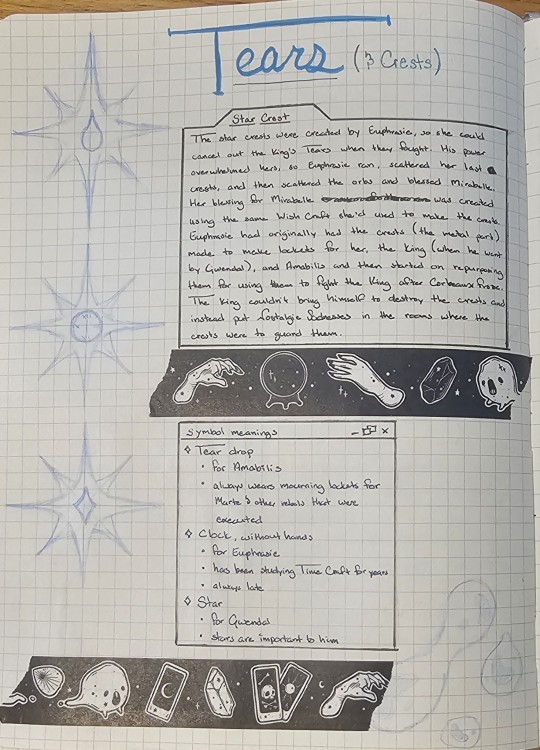 Tears (3 Crests)
Star Crest
The star crests were created by Euphrasie, so she could
cancel out the King's Tears when they fought. His power
overwhelmed hers, so Euphrasie ran, scattered her last
crests, and then scattered the orbs and blessed Mirabelle.
Her blessing for Mirabelle was created
using the same Wish Craft she'd used to make the crests.
Euphrasie had originally had the crests (the metal part)
made to make lockets for her, the King (when he went
by Gwendal), and Amabilis and then started on repurposing
them for using them to fight the King after Corbeaux froze.
The King couldn't bring himself to destroy the crests and
instead put Nostalgic Sadnesses in the rooms where the
crests were to guard them.
Symbol meanings
Tear drop
• for Amabilis
• always wears mourning lockets for
other rebels that were
executed
Clock, without hands
• for Euphrasie
• has been studying Time Craft for years
• always late
Star
• for Gwendal
• stars are important to him